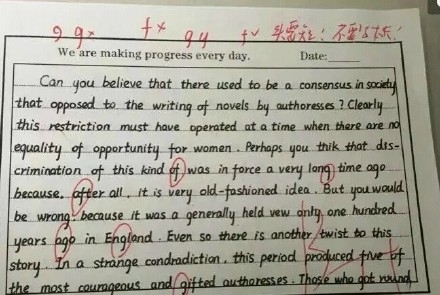 9 9x fx 9y fv 头要短！不要弯！
We are making progress every day. Date:
Can you believe that there used to be a consensus in society
that opposed to the writing of novels by authoresses? Clearly
this restriction must have operated at a time when there are no
equality of opportunity for women. Perhaps you thik that dis-
crimination of this kind of was in force a very long time ago
because, after all, it is very old-fashioned idea. But you would
be wrong: because it was a generally held vew only one hundred
years ago in England. Even so there is another twist to this
story. In a strange condradiction, this period produced five of
the most courageous and gifted authoresses. Those who got round